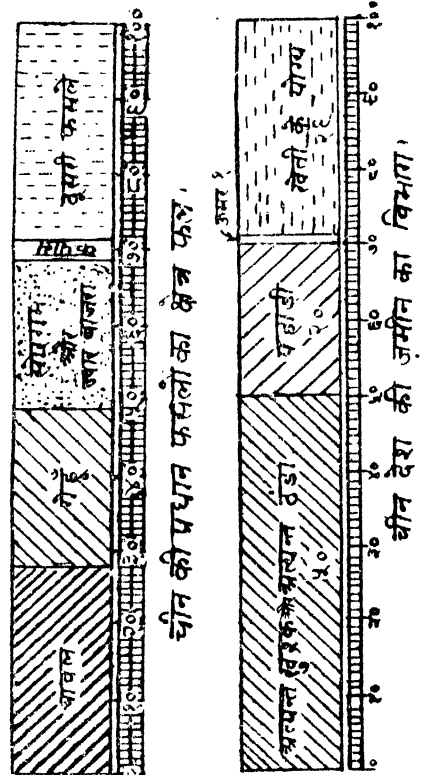 चावल
गेहूँ
और
ज्वार बाजरा
दूसरी फसलें
१० २० ३० ४० ५० ६० ७० ८० ९० १००
चीन की प्रधान फसलों का क्षेत्र फल।
अत्यन्त अत्यन्त ठंडा
५०
पहाड़ी
२०
ऊसर १
खेती के योग्य
२९
० १० २० ३० ४० ५० ६० ७० ८० ९० १००
चीन देश की ज़मीन का विभाग।